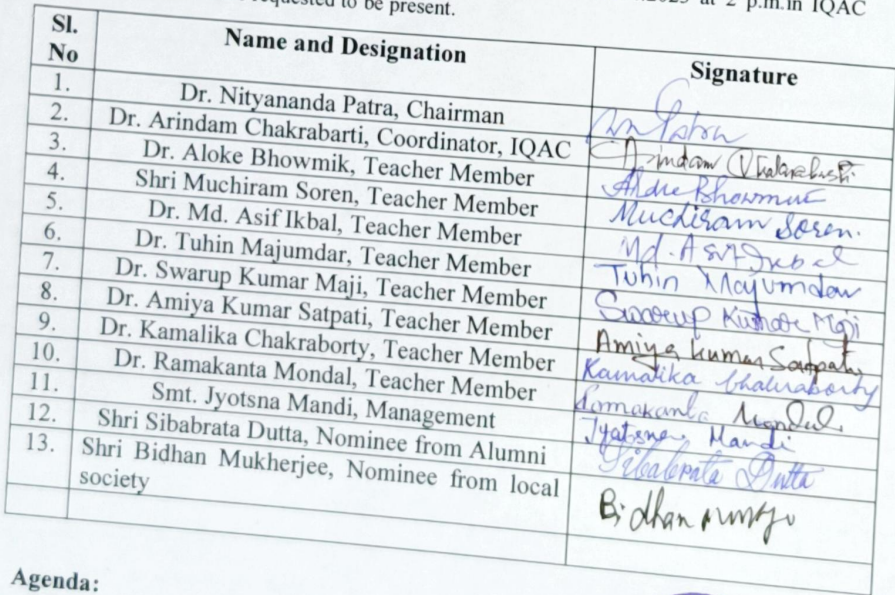 requested to be present. 2023 at 2 p.m.in IQAC
Sl. No Name and Designation Signature
1. Dr. Nityananda Patra, Chairman
2. Dr. Arindam Chakrabarti, Coordinator, IQAC Arindam Chakrabarti
3. Dr. Aloke Bhowmik, Teacher Member Aloke Bhowmik
4. Shri Muchiram Soren, Teacher Member Muchiram Soren.
5. Dr. Md. Asif Ikbal, Teacher Member Md. Asif Iqbal
6. Dr. Tuhin Majumdar, Teacher Member Tuhin Majumdar
7. Dr. Swarup Kumar Maji, Teacher Member Swarup Kumar Maji
8. Dr. Amiya Kumar Satpati, Teacher Member Amiya Kumar Satpati
9. Dr. Kamalika Chakraborty, Teacher Member Kamalika Chakraborty
10. Dr. Ramakanta Mondal, Teacher Member Ramakanta Mondal
11. Smt. Jyotsna Mandi, Management Jyotsna Mandi
12. Shri Sibabrata Dutta, Nominee from Alumni Sibabrata Dutta
13. Shri Bidhan Mukherjee, Nominee from local
society Bidhan
Agenda: